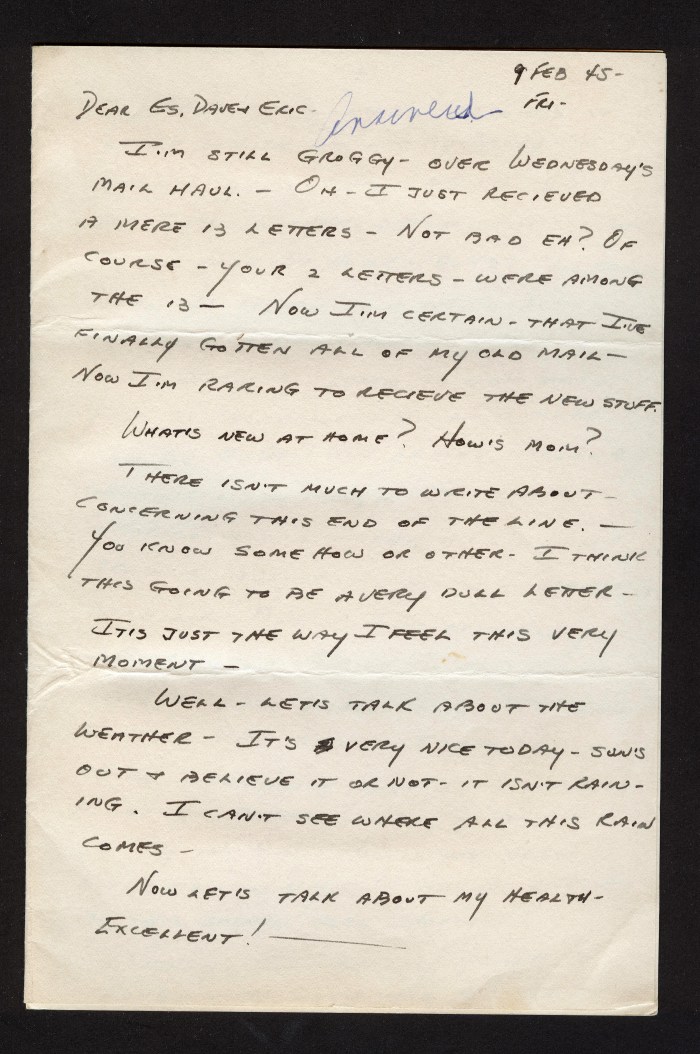 9 FEB 45-
DEAR ES, DAVE & ERIC- Answered FRI-
I'M STILL GROGGY- OVER WEDNESDAY'S
MAIL HAUL. - OH - I JUST RECIEVED
A MERE 13 LETTERS - NOT BAD EH? OF
COURSE - YOUR 2 LETTERS - WERE AMONG
THE 13 - NOW I'M CERTAIN - THAT I'VE
FINALLY GOTTEN ALL OF MY OLD MAIL -
NOW I'M RARING TO RECIEVE THE NEW STUFF.
WHAT'S NEW AT HOME? HOW'S MOM?
THERE ISN'T MUCH TO WRITE ABOUT -
CONCERNING THIS END OF THE LINE. -
YOU KNOW SOME HOW OR OTHER - I THINK
THIS GOING TO BE A VERY DULL LETTER -
IT IS JUST THE WAY I FEEL THIS VERY
MOMENT -
WELL - LET'S TALK ABOUT THE
WEATHER - IT'S VERY NICE TODAY - SUN'S
OUT & BELIEVE IT OR NOT - IT ISN'T RAIN-
ING. I CAN'T SEE WHERE ALL THIS RAIN
COMES -
NOW LET'S TALK ABOUT MY HEALTH -
EXCELLENT! -